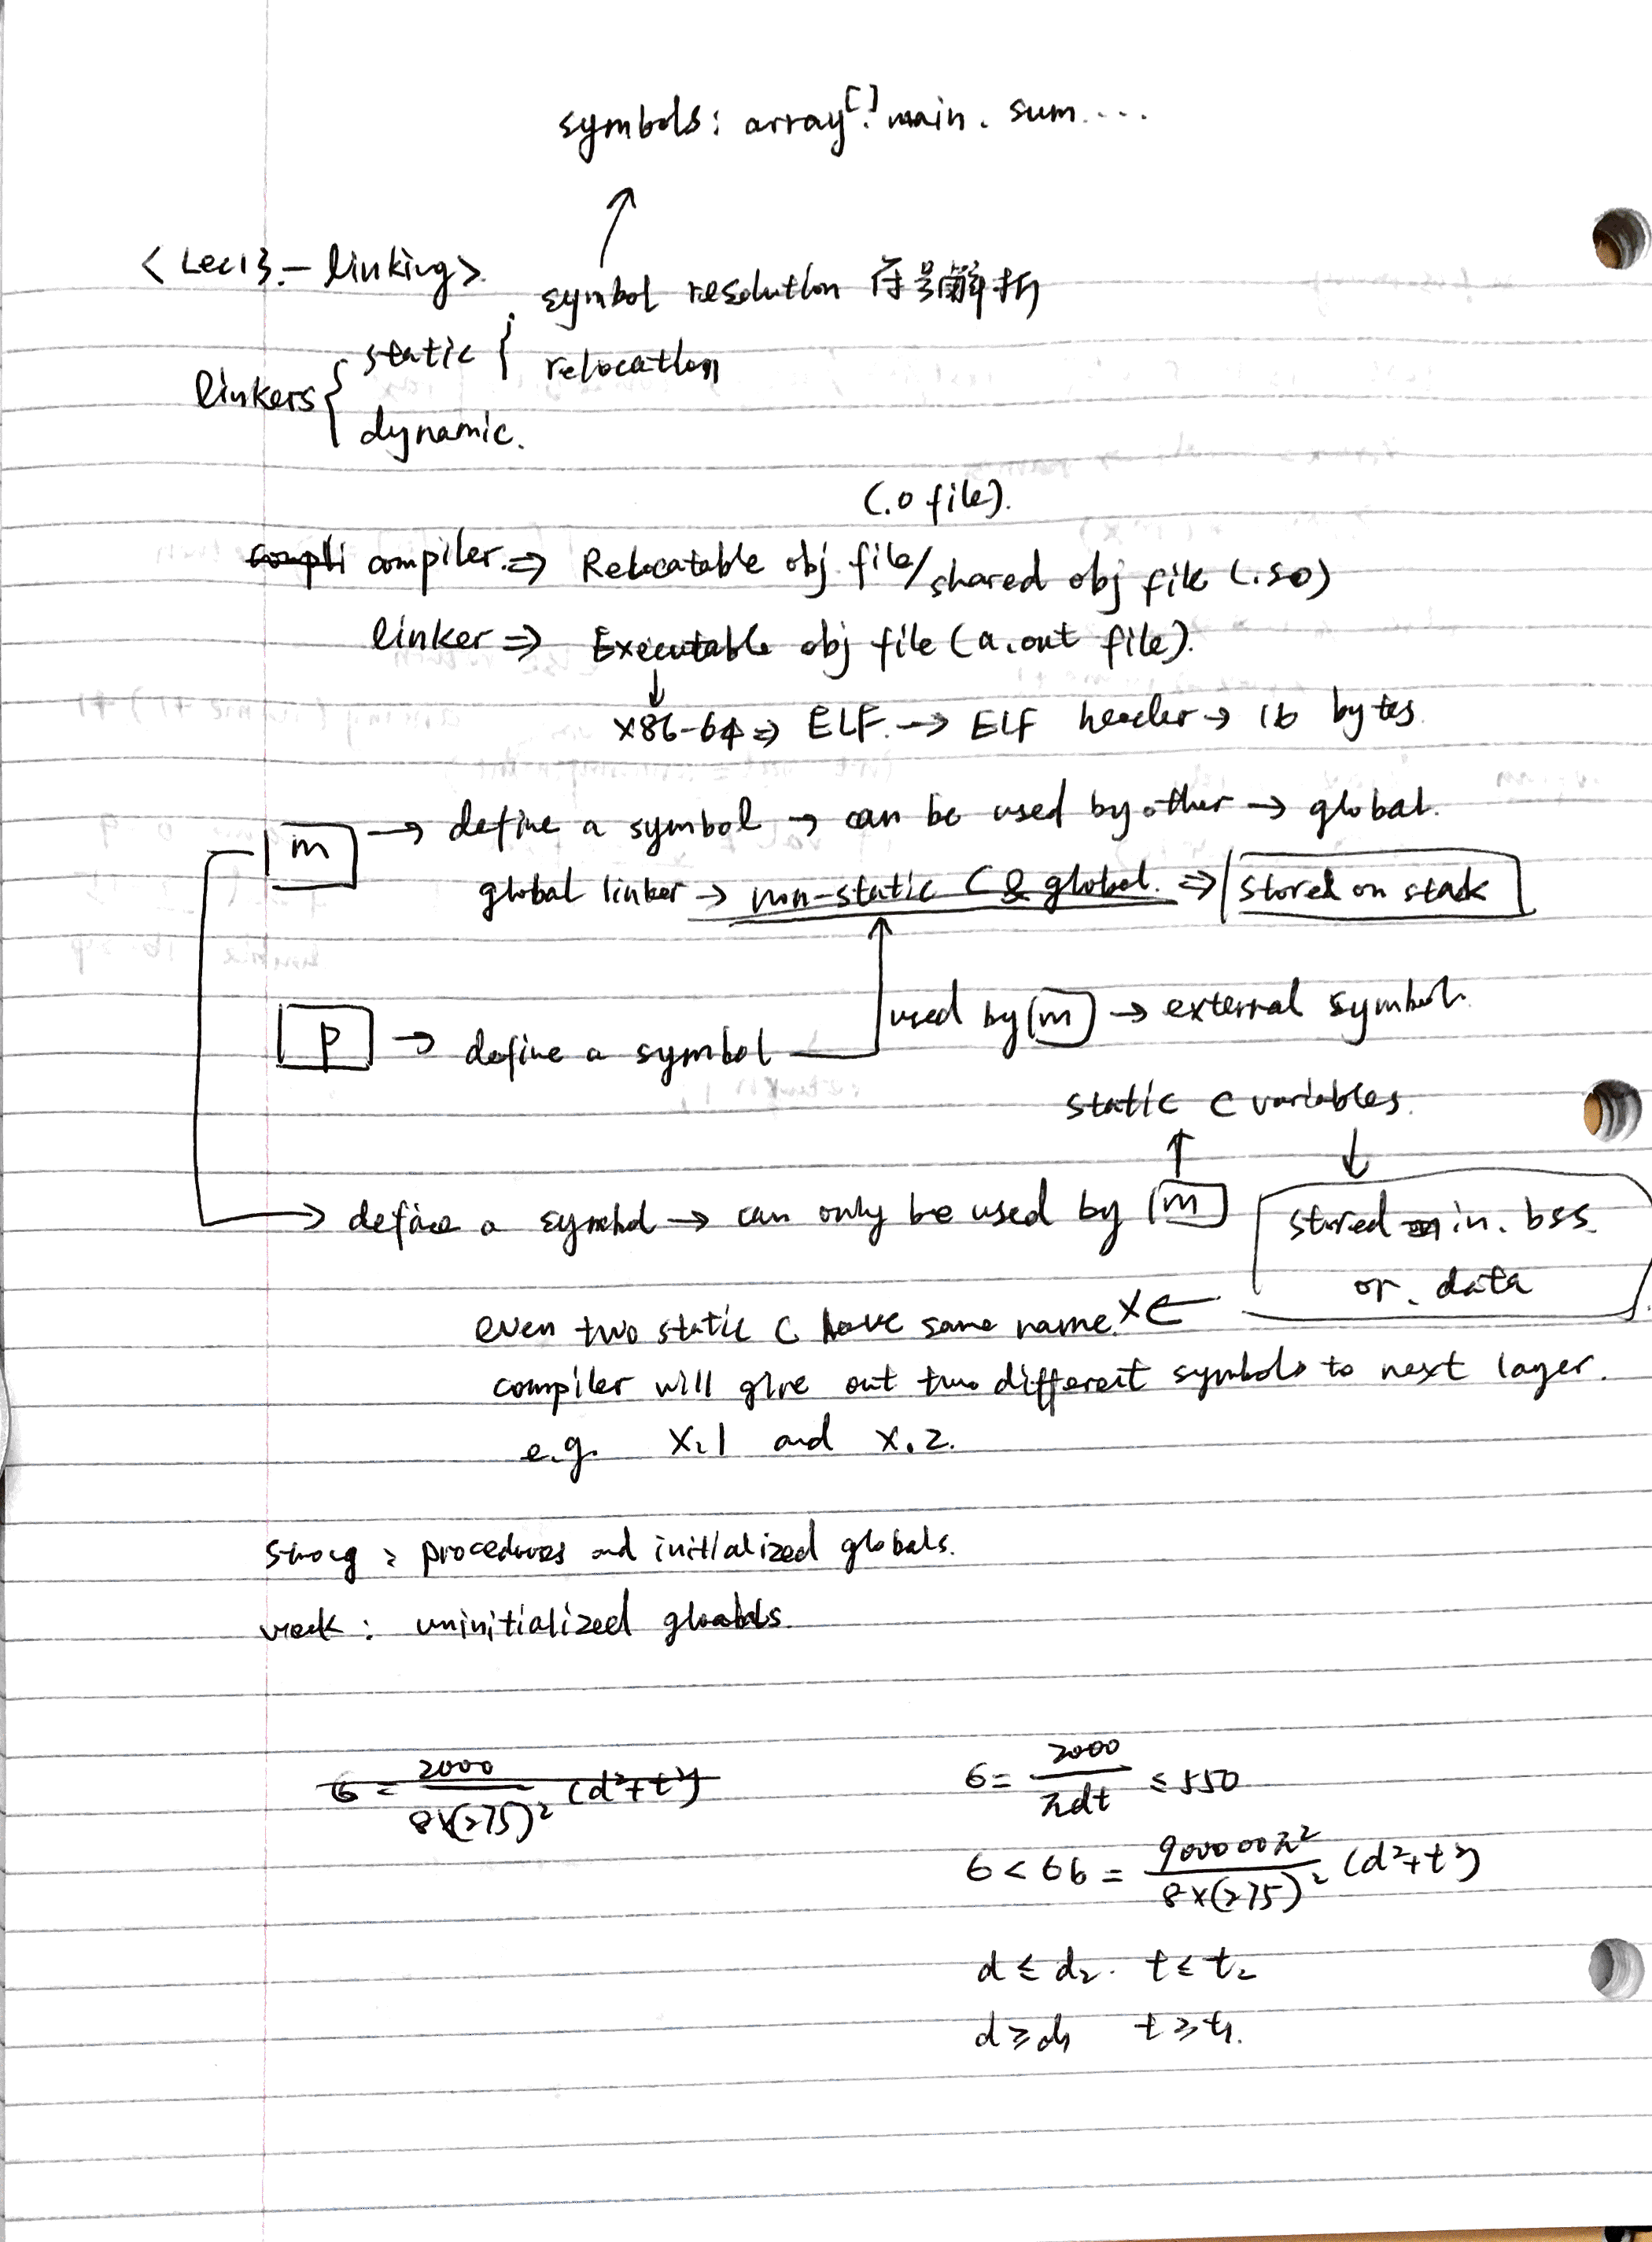 symbols: array[]. main. sum....
<Lec13.- linking>
symbol resolution 符号解析
linkers { static { relocation
dynamic.
(.o file).
compli compiler. ⇒ Relocatable obj file/shared obj file (.so)
linker ⇒ Executable obj file (a.out file).
↓
x86-64 ⇒ ELF. → ELF header → 16 bytes
m → define a symbol → can be used by other → global.
global linker → non-static C & global. ⇒ stored on stack
used by m → external symbol.
P → define a symbol
static C variables.
→ define a symbol → can only be used by m
stored in .bss
or .data
even two static C have same name. x ←
compiler will give out two different symbols to next layer.
e.g. x.1 and x.2.
strong: procedures and initialized globals.
weak: uninitialized gloabls.
6 = 2000 / 8×(275)² (d²+t²)
6 = 2000 / πdt ≤ 550
6 < 6b = 900000π² / 8×(275)² (d²+t²)
d ≤ d2. t ≤ t2
d ≥ d1 t ≥ t1.